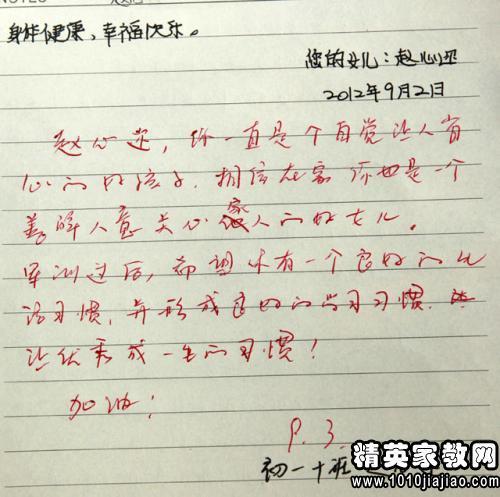 身体健康，幸福快乐。
您的女儿：赵心
2012年9月2日
赵心，你一直是个自觉让人省
心的好孩子，相信在家你也是一个
善解人意关心家人的好女儿。
军训过后，希望你有一个良好的生
活习惯，并形成良好的学习习惯，
让优秀成一生的习惯！
加油！
9.3.
初一十班
精英家教网
www.1010jiajiao.com